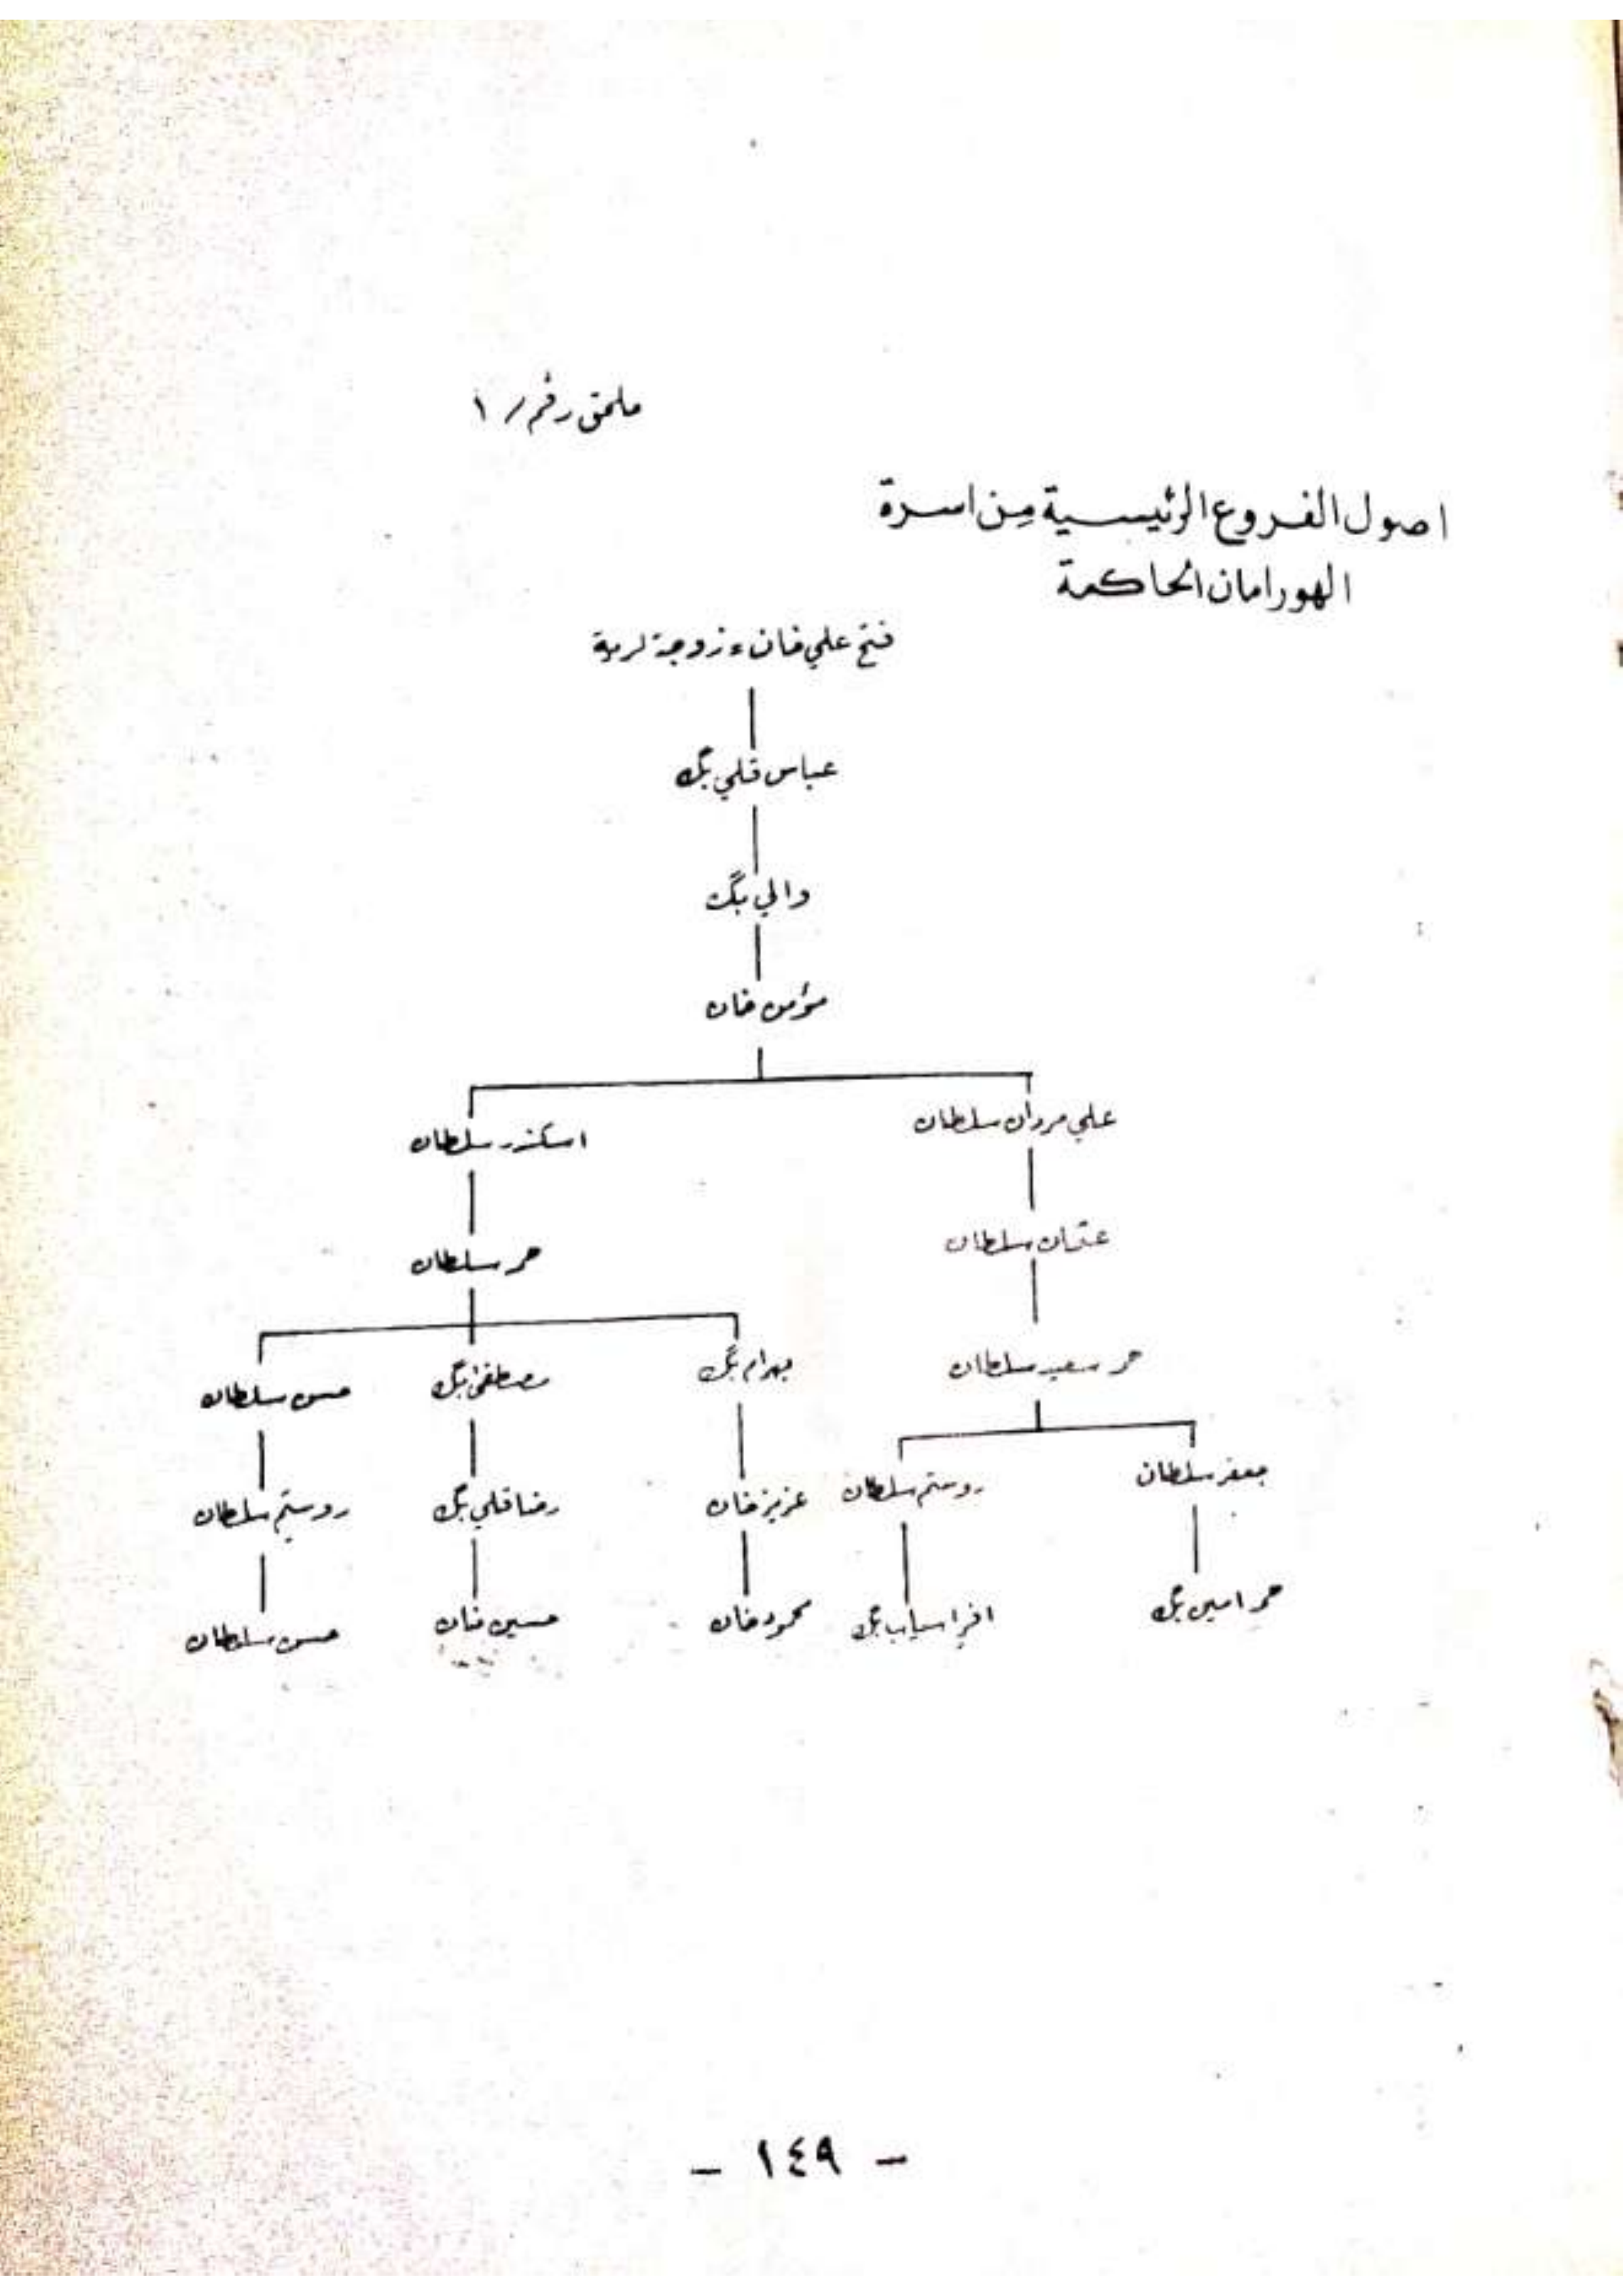 ملحق رقم / ١
اصول الفروع الرئيسية من اسرة
الهورامان الحاكمة
فتح علي خان ، زوجة لرية
عباس قلي بگ
والي بگ
مؤمن خان
علي مردان سلطان
اسكندر سلطان
عثمان سلطان
حمه سلطان
حمه سعيد سلطان
بهرام بگ
مصطفى بگ
حسن سلطان
جعفر سلطان
روستم سلطان
عزيز خان
رضا قلي بگ
روستم سلطان
حمه امين بگ
افراسياب بگ
محمود خان
حسين خان
حسن سلطان
- ١٤٩ -